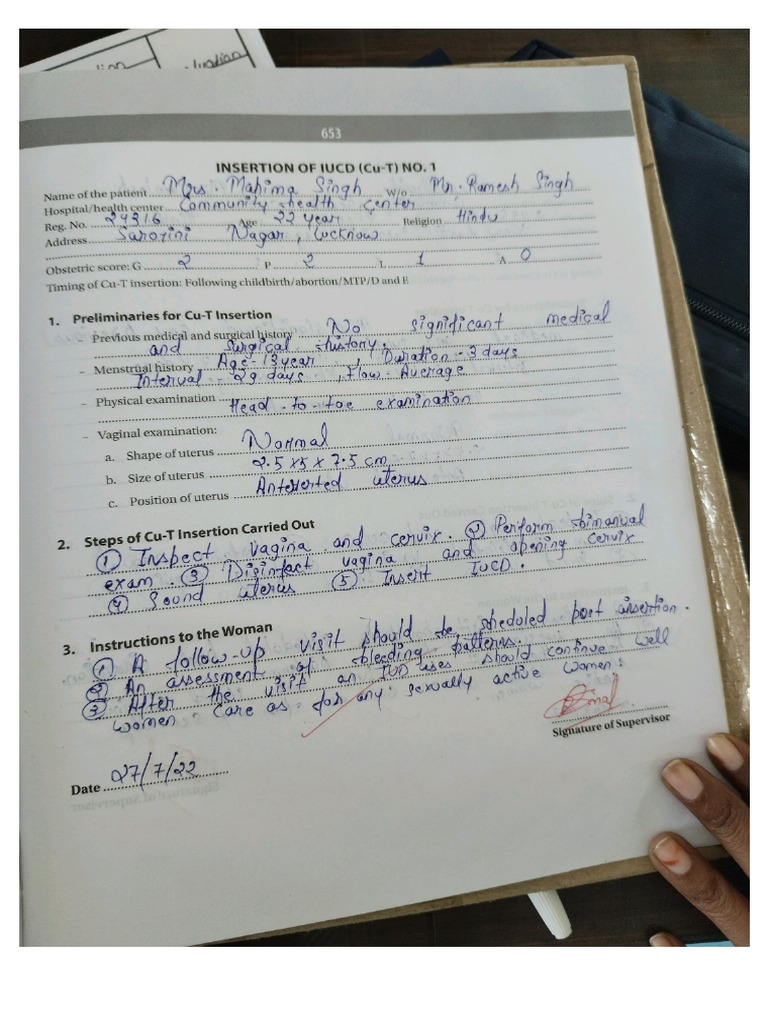 653
INSERTION OF IUCD (Cu-T) NO. 1
Name of the patient Mrs. Mahima Singh W/o Mr. Ramesh Singh
Hospital/health center Community health center
Reg. No. 24316 Age 22 year Religion Hindu
Address Sarojini Nagar, Lucknow
Obstetric score: G 2 P 2 L 1 A 0
Timing of Cu-T insertion: Following childbirth/abortion/MTP/D and E
1. Preliminaries for Cu-T Insertion
Previous medical and surgical history No significant medical
and surgical history.
– Menstrual history Age - 13 year, Duration - 3 days
Interval - 29 days, Flow - Average
– Physical examination Head-to-toe examination
– Vaginal examination:
a. Shape of uterus Normal
b. Size of uterus 2.5 x5 x 7.5 cm
c. Position of uterus Anteverted uterus
2. Steps of Cu-T Insertion Carried Out
① Inspect vagina and cervix. ② Perform bimanual
exam. ③ Disinfact vagina and opening cervix
④ Sound uterus ⑤ Insert IUCD.
3. Instructions to the Woman
① A follow-up visit should be sheduled post insertion.
② An assessment of bleeding patterns.
③ After the visit an IUD uses should continue well
women care as for any sexually active women.
Signature of Supervisor
Date 27/7/22